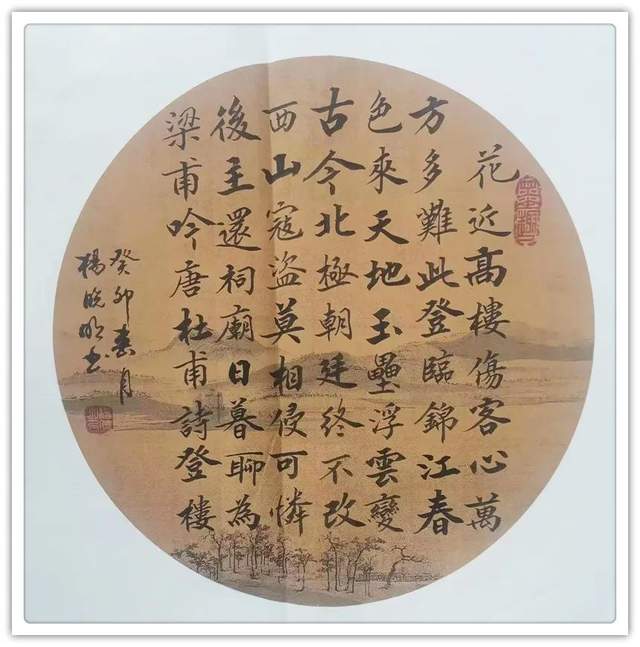 花近高樓傷客心萬
方多難此登臨錦江春
色來天地玉壘浮雲變
古今北極朝廷終不改
西山寇盜莫相侵可憐
後主還祠廟日暮聊為
梁甫吟唐杜甫詩登樓
癸卯春月
楊晓明书